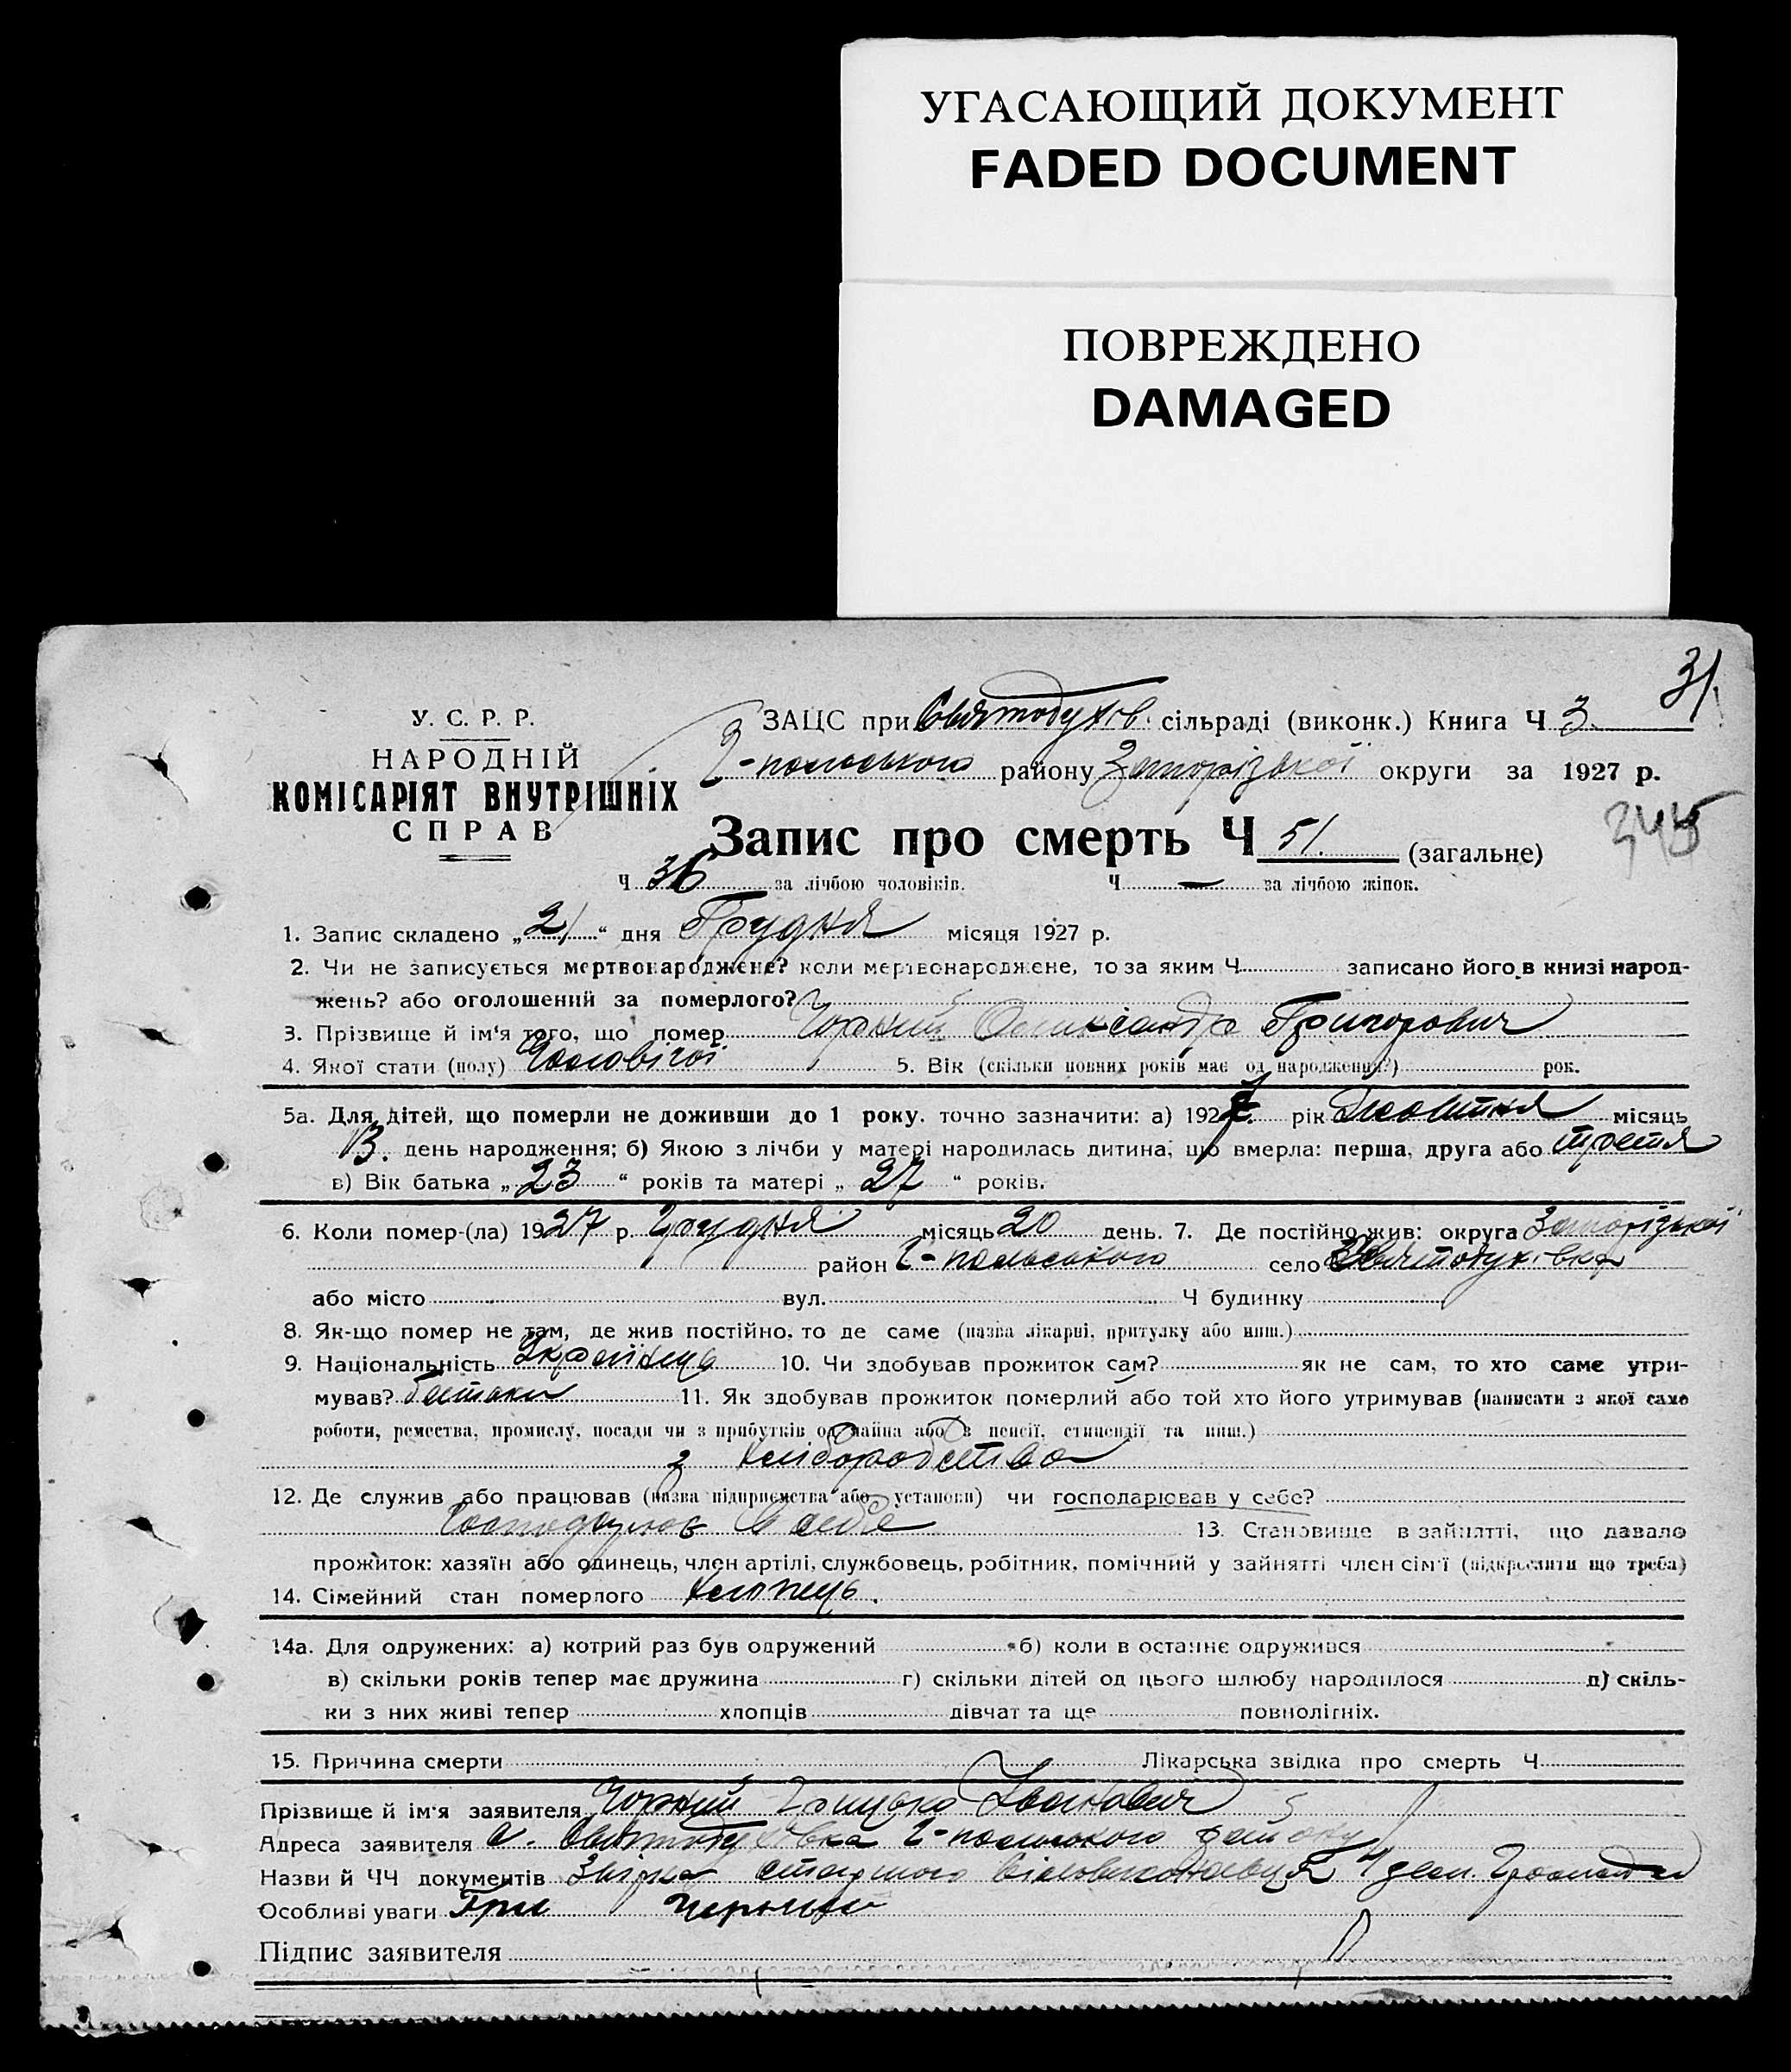 УГАСАЮЩИЙ ДОКУМЕНТ
FADED DOCUMENT
ПОВРЕЖДЕНО
DAMAGED
31.
У. С. Р. Р.
НАРОДНІЙ
КОМІСАРІЯТ ВНУТРІШНІХ
СПРАВ
ЗАЦС при Святодухів. сільраді (виконк.) Книга Ч 3.
Г-польського району Запорізької округи за 1927 р.
345
Запис про смерть Ч 51. (загальне)
Ч 36 за лічбою чоловіків. Ч — за лічбою жінок.
1. Запис складено „21“ дня Грудня місяця 1927 р.
2. Чи не записується мертвонароджене? коли мертвонароджене, то за яким Ч записано його в книзі народ-
жень? або оголошений за померлого?
3. Прізвище й ім'я того, що помер Чорний Олександр Григорович
4. Якої стати (полу) Чоловічої 5. Вік (скільки повних років має од народження?) рок.
5а. Для дітей, що померли не доживши до 1 року. точно зазначити: а) 1927. рік Жовтня місяць
13. день народження; б) Якою з лічби у матері народилась дитина, що вмерла: перша, друга або третя
в) Вік батька „23“ років та матері „27“ років.
6. Коли помер-(ла) 1927 р. Грудня місяць 20 день. 7. Де постійно жив: округа Запорізької
район Г-польського село Святодухівка
або місто вул. Ч будинку
8. Як-що помер не там, де жив постійно, то де саме (назва лікарні, притулку або инш.)
9. Національність Українець 10. Чи здобував прожиток сам? як не сам, то хто саме утри-
мував? батьки 11. Як здобував прожиток померлий або той хто його утримував (написати з якої саме
роботи, ремества, промислу, посади чи з прибутків од майна або з пенсії, стипендії та инш.)
з хліборобства
12. Де служив або працював (назва підприємства або установи) чи господарював у себе?
Господарює в себе 13. Становище в зайнятті, що давало
прожиток: хазяїн або одинець, член артілі, службовець, робітник, помічний у зайнятті член сім'ї (підкреслити що треба)
14. Сімейний стан померлого хлопець.
14а. Для одружених: а) котрий раз був одружений б) коли в останнє одружився
в) скільки років тепер має дружина г) скільки дітей од цього шлюбу народилося д) скіль-
ки з них живі тепер хлопців дівчат та ще повнолітніх.
15. Причина смерти Лікарська звідка про смерть Ч
Прізвище й ім'я заявителя Чорний Грицько Іванович
Адреса заявителя с. Святодухівка Г-польського району
Назви й ЧЧ документів Звідка старшого виконавця 4 Громади
Особливі уваги Гри Черный
Підпис заявителя